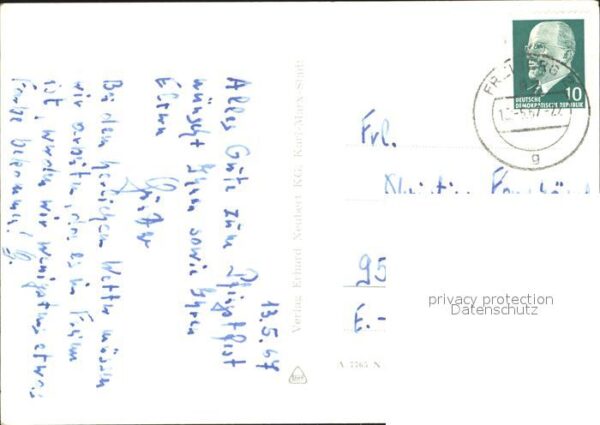 13.5.67
Alles Gute zum Pfingstfest
wünscht Ihnen sowie Ihren
Eltern
Günter
Bei dem herrlichen Wetter müssen
wir arbeiten, da es im Freien
ist, werden wir wenigstens etwas
Farbe bekommen! G.
Verlag Erhard Neubert KG, Karl-Marx-Stadt
A 7765 N
10
DEUTSCHE
DEMOKRATISCHE REPUBLIK
g
Frl.
95
E.-
privacy protection
Datenschutz